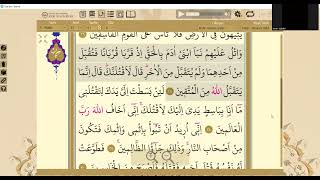 يَتِيهُونَ فِي الْأَرْضِ فَلَا تَأْسَ عَلَى الْقَوْمِ الْفَاسِقِينَ
وَاتْلُ عَلَيْهِمْ نَبَأَ ابْنَيْ آدَمَ بِالْحَقِّ إِذْ قَرَّبَا قُرْبَانًا فَتُقُبِّلَ
مِنْ أَحَدِهِمَا وَلَمْ يُتَقَبَّلْ مِنَ الْآخَرِ قَالَ لَأَقْتُلَنَّكَ قَالَ إِنَّمَا
يَتَقَبَّلُ اللَّهُ مِنَ الْمُتَّقِينَ لَئِنْ بَسَطْتَ إِلَيَّ يَدَكَ لِتَقْتُلَنِي
مَا أَنَا بِبَاسِطٍ يَدِيَ إِلَيْكَ لِأَقْتُلَكَ إِنِّي أَخَافُ اللَّهَ رَبَّ
الْعَالَمِينَ إِنِّي أُرِيدُ أَنْ تَبُوءَ بِإِثْمِي وَإِثْمِكَ فَتَكُونَ
مِنْ أَصْحَابِ النَّارِ وَذَلِكَ جَزَاءُ الظَّالِمِينَ فَطَوَّعَتْ